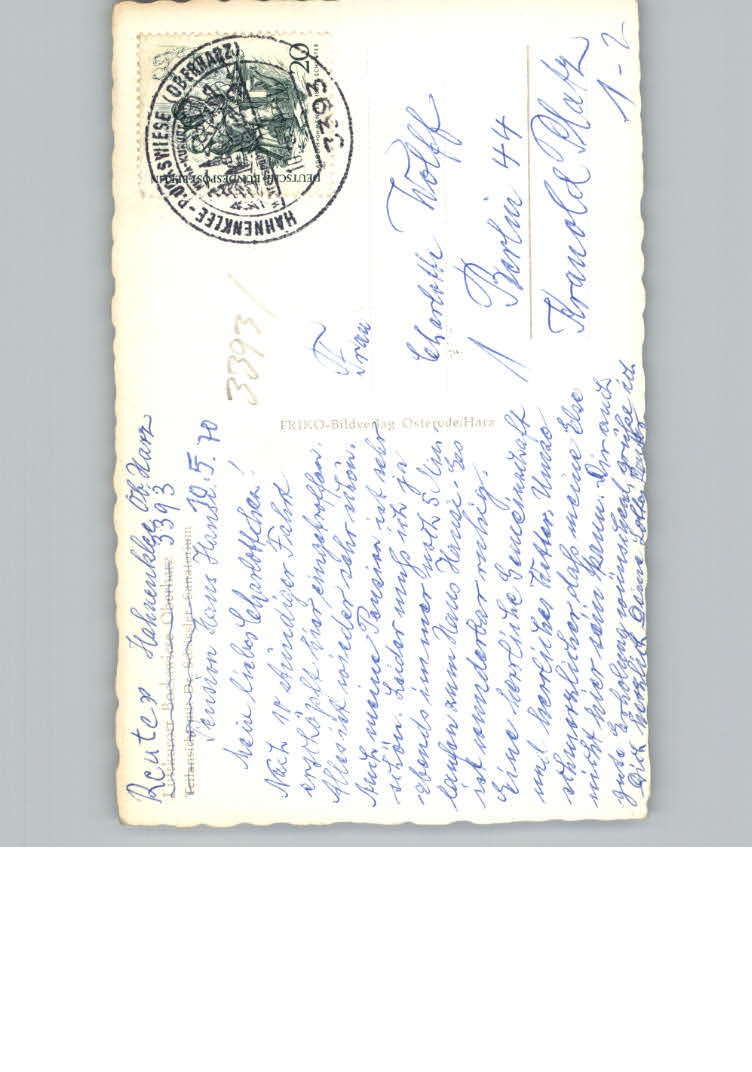 Reuter Hahnenklee Ob. Harz
3393
Pension Haus Hande 10.5.70
Mein liebes Charlottchen!
Nach 10 stündiger Fahrt
erschöpft hier eingetroffen.
Alles ist wieder sehr schön.
Auch meine Pension ist sehr
schön. Leider muß ich ja
abends immer noch 5 Min
laufen zum Haus Hause. Es
ist wunderbar ruhig.
Eine herrliche Gemeinschaft
und herrliches Wetter. Umso
schmerzlicher, daß meine Else
nicht hier sein kann. Dir auch
gute Erholung wünschend, grüße ich
Dich herzlich Deine Lotte
FRIKO-Bildverlag Osterode/Harz
3393 /
Frau
Charlotte Wolff
1 Berlin 44
Kranold Platz
1-2
DEUTSCHE BUNDESPOST BERLIN
20
HAHNENKLEE-BOCKSWIESE (OBERHARZ)
3393